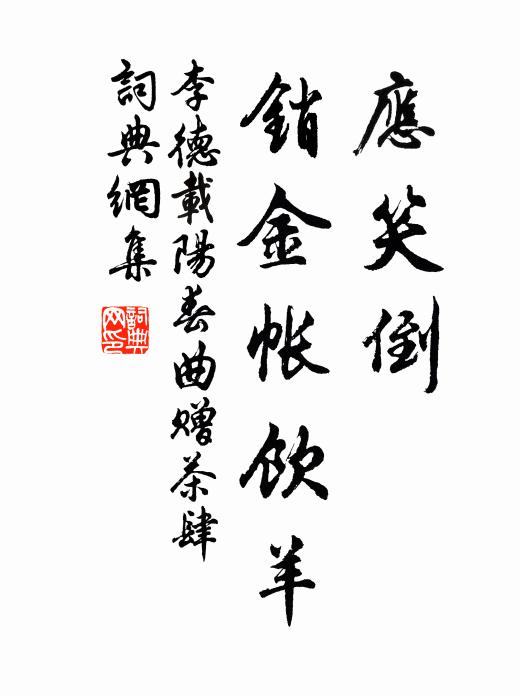 應笑倒
銷金帳飲羊
李德載陽春曲贈茶肆
詞典網集
詞典网印